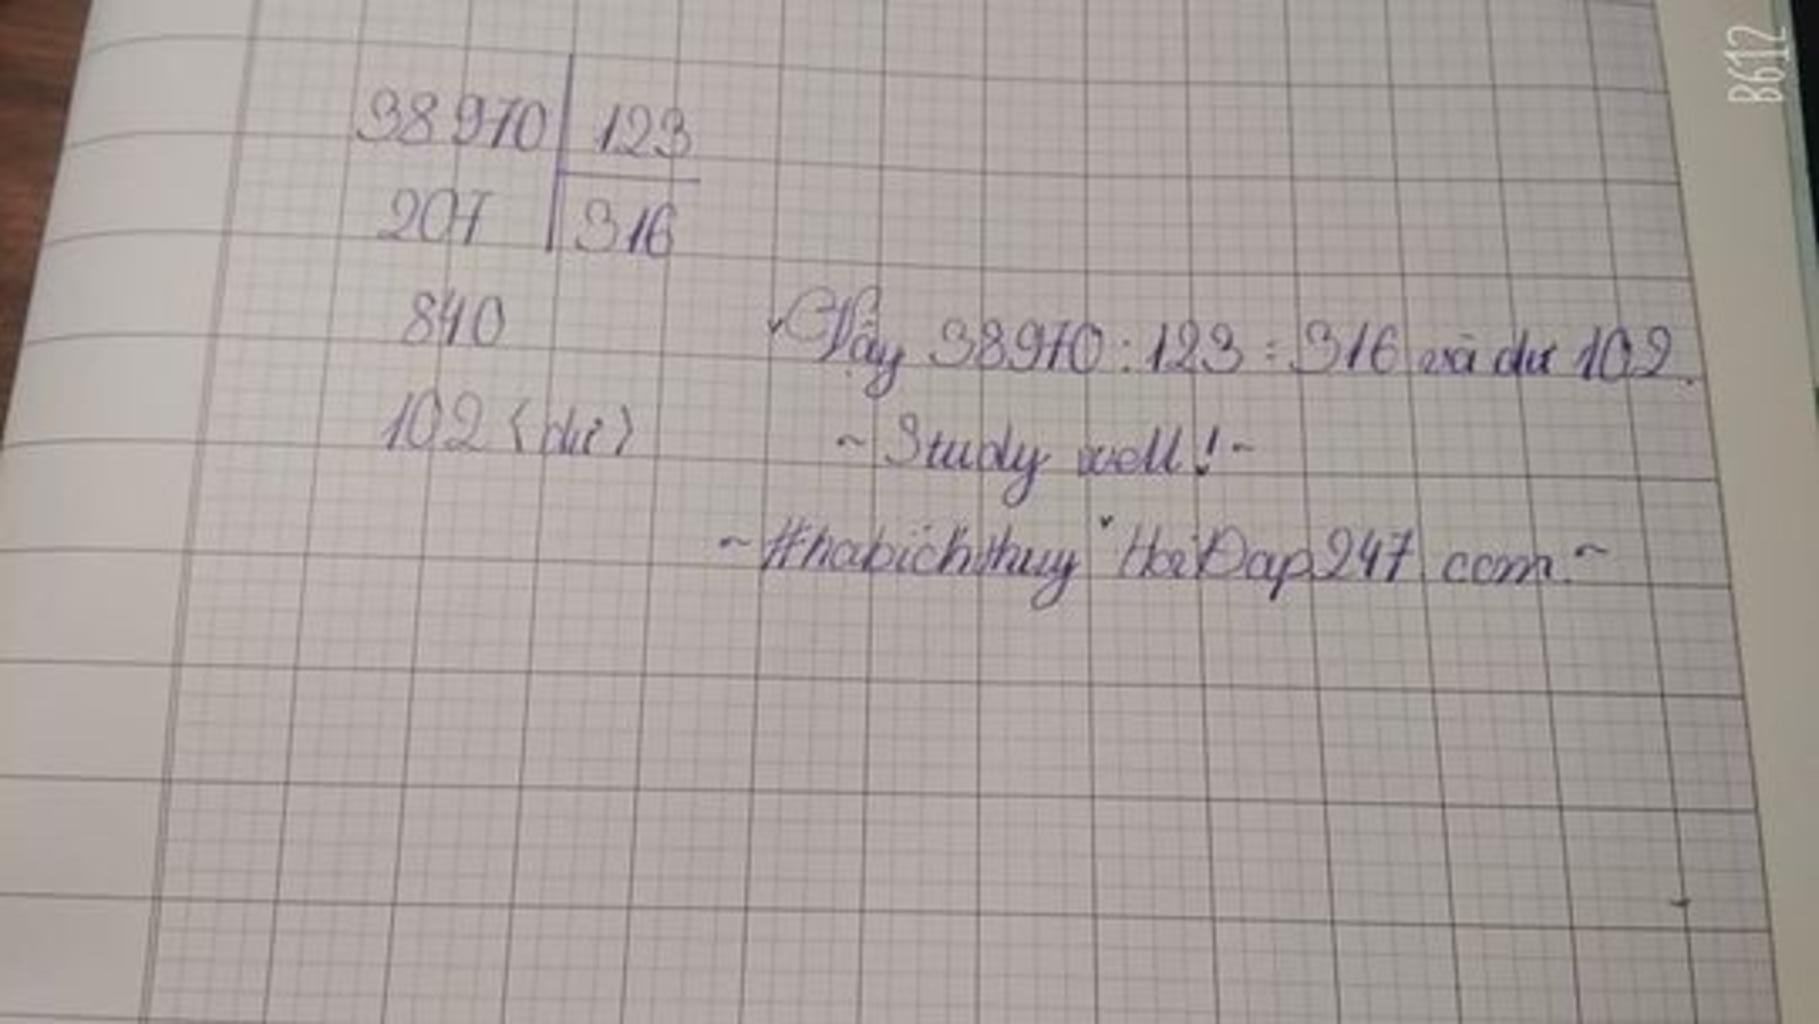 38970 | 123
207 | 316
840
102 (dư)
Vậy 38970 : 123 = 316 và dư 102.
~ Study well! ~
~ #habichthuy HoiDap247 com. ~
B612